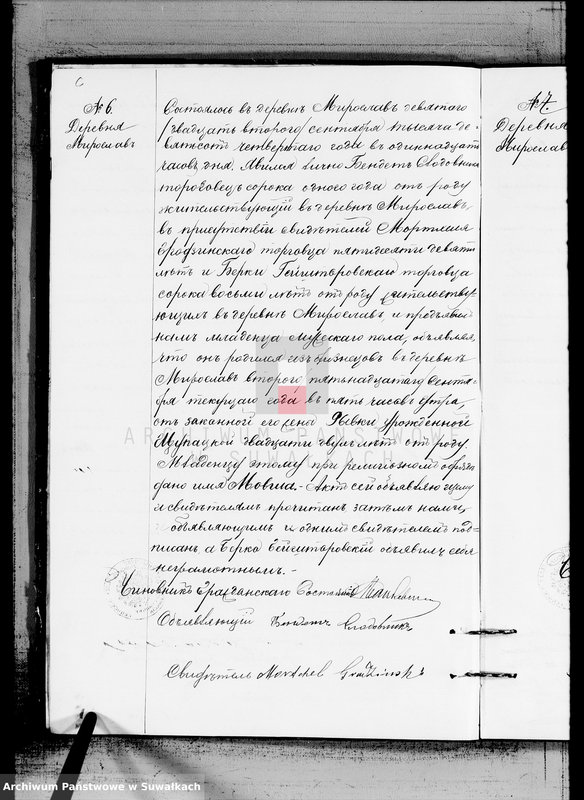 6
№ 6.
Деревня
Мирославъ
Состоялось въ деревнѣ Мирославъ девятаго
/двадцать втораго/ сентября тысяча де-
вятсотъ четвертаго года въ одиннадцать
часовъ дня. Явился лично Бендетъ Слодовникъ
торговецъ сорока одного года отъ роду
жительствующій въ деревнѣ Мирославъ,
въ присутствіи свидѣтелей Мортхеля
Гродзинскаго торговца пятидесяти девяти
лѣтъ и Берки торговца
сорока восьми лѣтъ отъ роду жительству-
ющихъ въ деревнѣ Мирославъ, и предъявилъ
намъ младенца мужескаго пола, объявляя,
что онъ родился въ деревнѣ
Мирославъ втораго /пятьнадцатаго/ сентя-
бря текущаго года въ пять часовъ утра,
отъ законной его жены Рывки урожденной
Щупацкой двадцати лѣтъ отъ роду
Младенцу этому при религіозномъ обрядѣ
дано имя Мовша.- Актъ сей объявляющему
и свидѣтелямъ прочитанъ затѣмъ нами,
объявляющимъ и однимъ свидѣтелемъ под-
писанъ, а Берко объявилъ себя
неграмотнымъ.-
Чиновникъ Гражданскаго Состоянія
Объявляющій Бендетъ Слодовникъ
Свидѣтель Mortchel Grodzinski
№ 7.
Деревня
Мирославъ
ARCHIWUM PAŃSTWOWE
W SUWAŁKACH
Archiwum Państwowe w Suwałkach